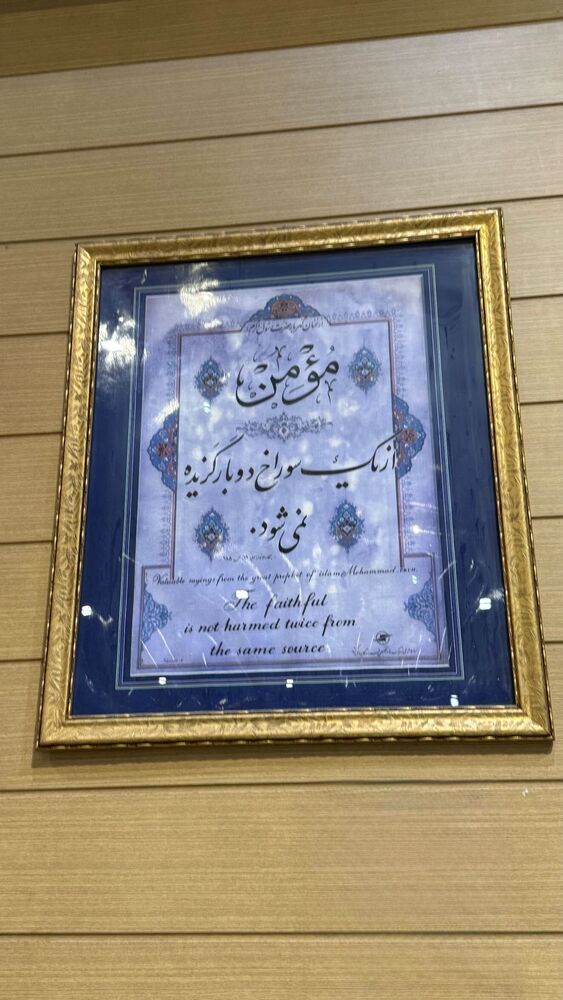 از سخنان گهربار حضرت رسول اکرم
مؤمن
از یک سوراخ دو بار گزیده
نمی شود.
Valuable sayings from the great prophet of islam Mohammad
The faithful
is not harmed twice from
the same source